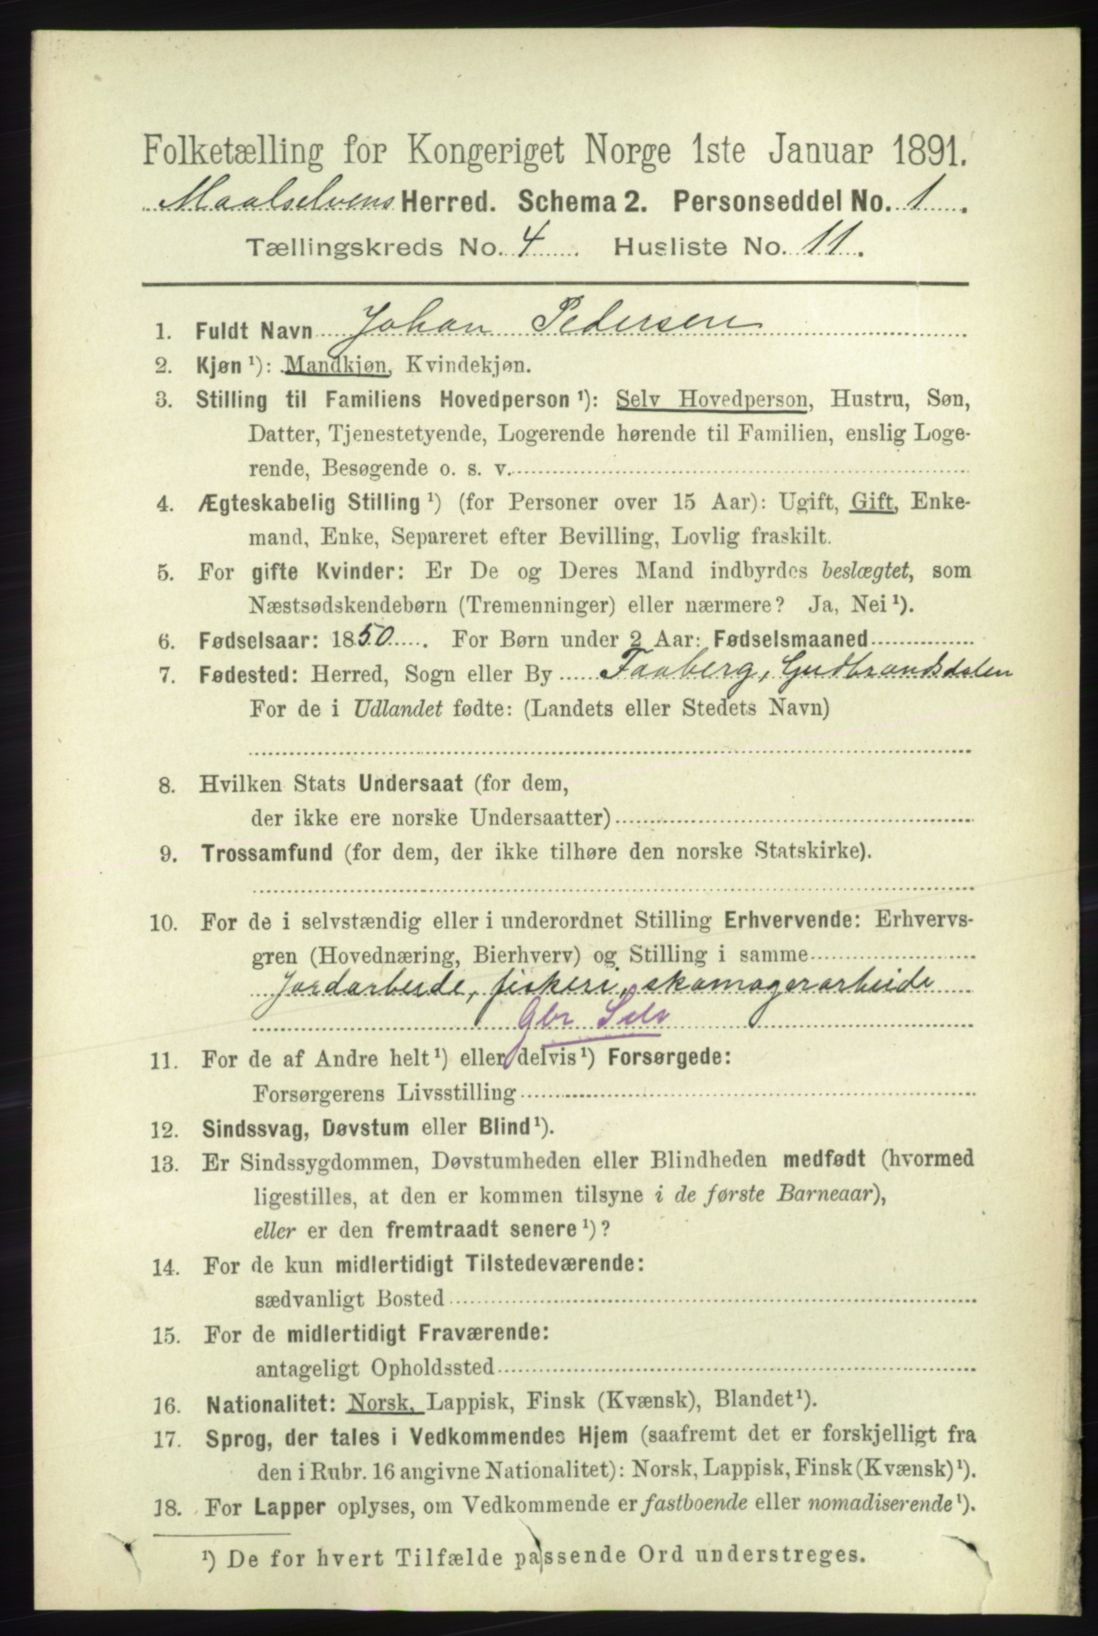 Folketælling for Kongeriget Norge 1ste Januar 1891.
Maalselvens Herred. Schema 2. Personseddel No. 1.
Tællingskreds No. 4. Husliste No. 11.
1. Fuldt Navn Johan Pedersen
2. Kjøn ¹): Mandkjøn, Kvindekjøn.
3. Stilling til Familiens Hovedperson ¹): Selv Hovedperson, Hustru, Søn,
Datter, Tjenestetyende, Logerende hørende til Familien, enslig Loge-
rende, Besøgende o. s. v.
4. Ægteskabelig Stilling ¹) (for Personer over 15 Aar): Ugift, Gift, Enke-
mand, Enke, Separeret efter Bevilling, Lovlig fraskilt.
5. For gifte Kvinder: Er De og Deres Mand indbyrdes beslægtet, som
Næstsødskendebørn (Tremenninger) eller nærmere? Ja, Nei ¹).
6. Fødselsaar: 1850. For Børn under 2 Aar: Fødselsmaaned
7. Fødested: Herred, Sogn eller By Faaberg, Gudbrandsdalen
For de i Udlandet fødte: (Landets eller Stedets Navn)
8. Hvilken Stats Undersaat (for dem,
der ikke ere norske Undersaatter)
9. Trossamfund (for dem, der ikke tilhøre den norske Statskirke).
10. For de i selvstændig eller i underordnet Stilling Erhvervende: Erhvervs-
gren (Hovednæring, Bierhverv) og Stilling i samme
Jordarbeide, fiskeri, skomagerarbeide
Gbr Selv
11. For de af Andre helt ¹) eller delvis ¹) Forsørgede:
Forsørgerens Livsstilling
12. Sindssvag, Døvstum eller Blind ¹).
13. Er Sindssygdommen, Døvstumheden eller Blindheden medfødt (hvormed
ligestilles, at den er kommen tilsyne i de første Barneaar),
eller er den fremtraadt senere ¹)?
14. For de kun midlertidigt Tilstedeværende:
sædvanligt Bosted
15. For de midlertidigt Fraværende:
antageligt Opholdssted
16. Nationalitet: Norsk, Lappisk, Finsk (Kvænsk), Blandet ¹).
17. Sprog, der tales i Vedkommendes Hjem (saafremt det er forskjelligt fra
den i Rubr. 16 angivne Nationalitet): Norsk, Lappisk, Finsk (Kvænsk) ¹).
18. For Lapper oplyses, om Vedkommende er fastboende eller nomadiserende ¹).
¹) De for hvert Tilfælde passende Ord understreges.